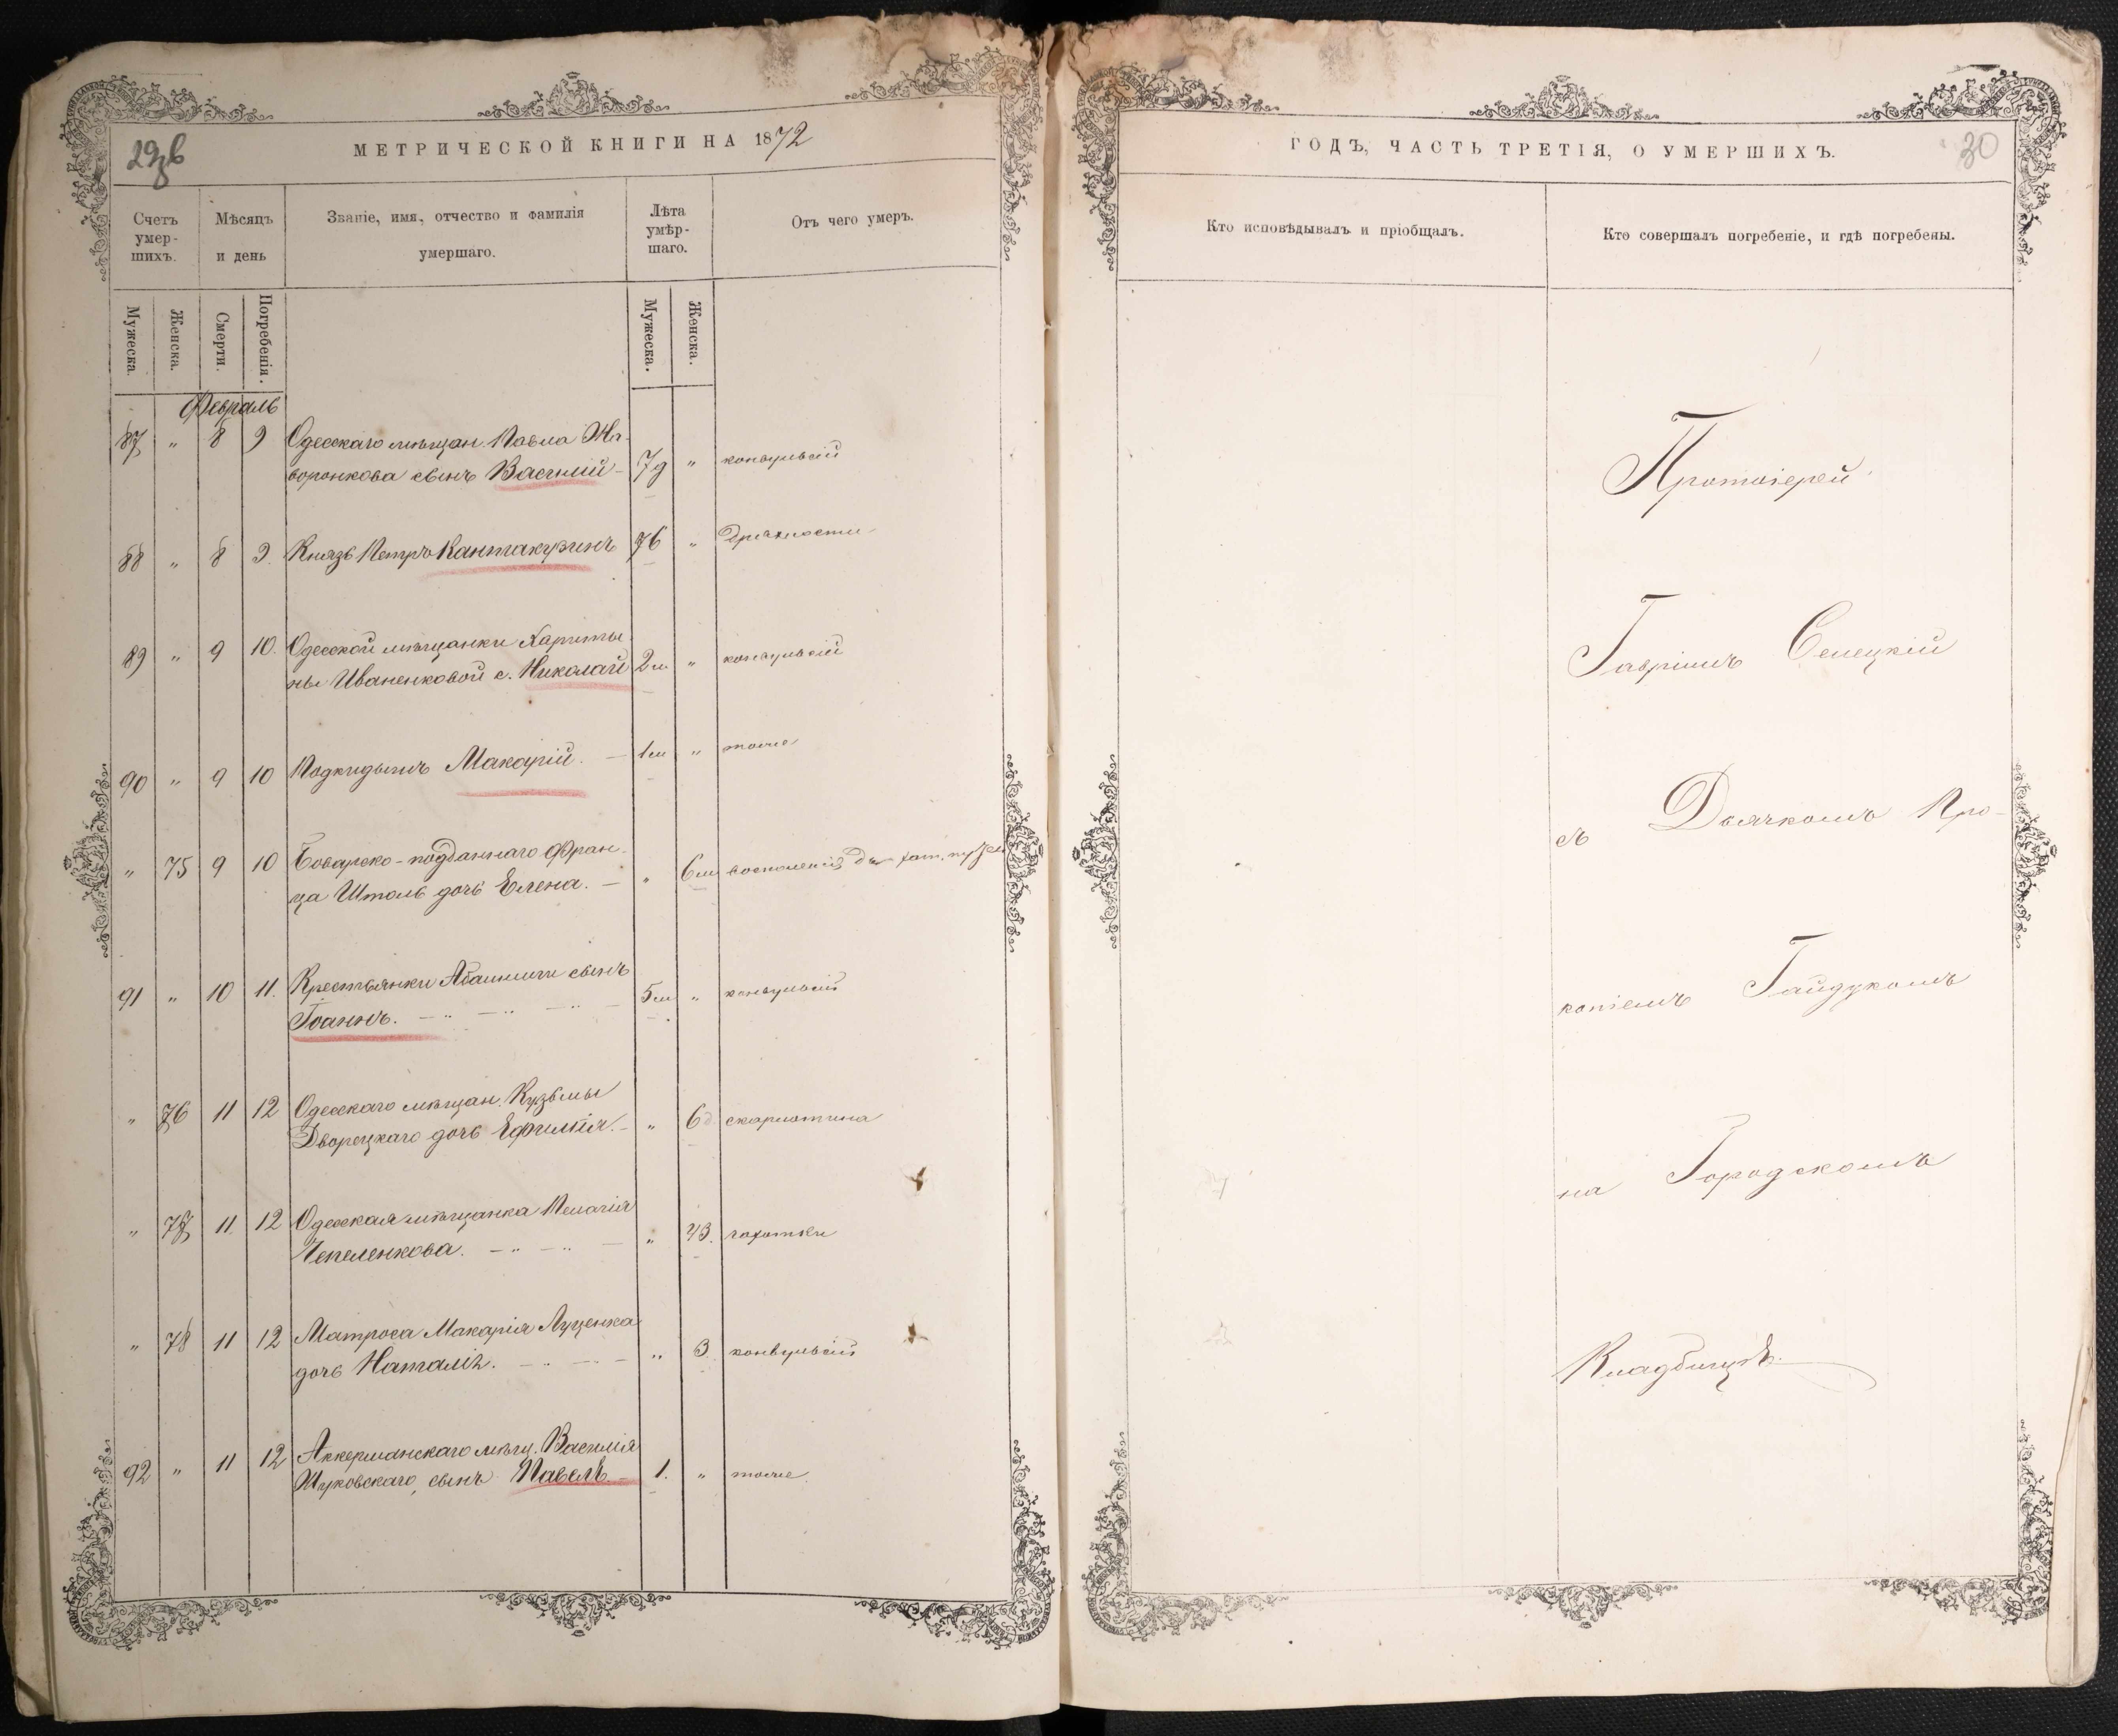 МЕТРИЧЕСКОЙ КНИГИ НА 1872
Счетъ умер- шихъ.
Мѣсяцъ и день
Званіе, имя, отчество и фамилія
умершаго.
Лѣта умѣр- шаго.
Отъ чего умеръ.
Мужеска.
Женска.
Смерти.
Погребенія.
Мужеска.
Женска.
Февраль
87 " 8 9 Одесскаго мѣщан. Павла Жа-
воронкова сынъ Василій - 7д " конвульсій
88 " 8 9. Князь Петръ Кантакузинъ 76 " Дряхлости
89 " 9 10. Одесской мѣщанки Харити-
ны Иваненковой с. Николай 2м " конвульсій
90 " 9 10 Подкидышъ Макарій. - 1м " тоже
" 75 9 10 Баварско-подданнаго Фран-
ца Штоль дочь Елена. - " 6м воспаленія
91 " 10 11. Крестьянки сынъ
Іоаннъ. 5м " конвульсій
" 76 11 12 Одесскаго мѣщан. Кузьмы
Дворецкаго дочь Ефимія. - " 6 скарлотина
" 77 11 12 Одесская мѣщанка Пелагія
Чепеленкова. " 43. чахотки
" 78 11 12 Матроса Макарія Луценка
дочь Наталія. " 3 конвульсій
92 " 11 12 Аккерманскаго мѣщ. Василія
сынъ Павелъ. - 1. " тоже
ГОДЪ, ЧАСТЬ ТРЕТІЯ, О УМЕРШИХЪ.
30
Кто исповѣдывалъ и пріобщалъ.
Кто совершалъ погребеніе, и гдѣ погребены.
Протоіерей
Гавріилъ Селецкій
съ Дьячкомъ Про-
копіемъ Гайдукомъ
на Городскомъ
Кладбищѣ.